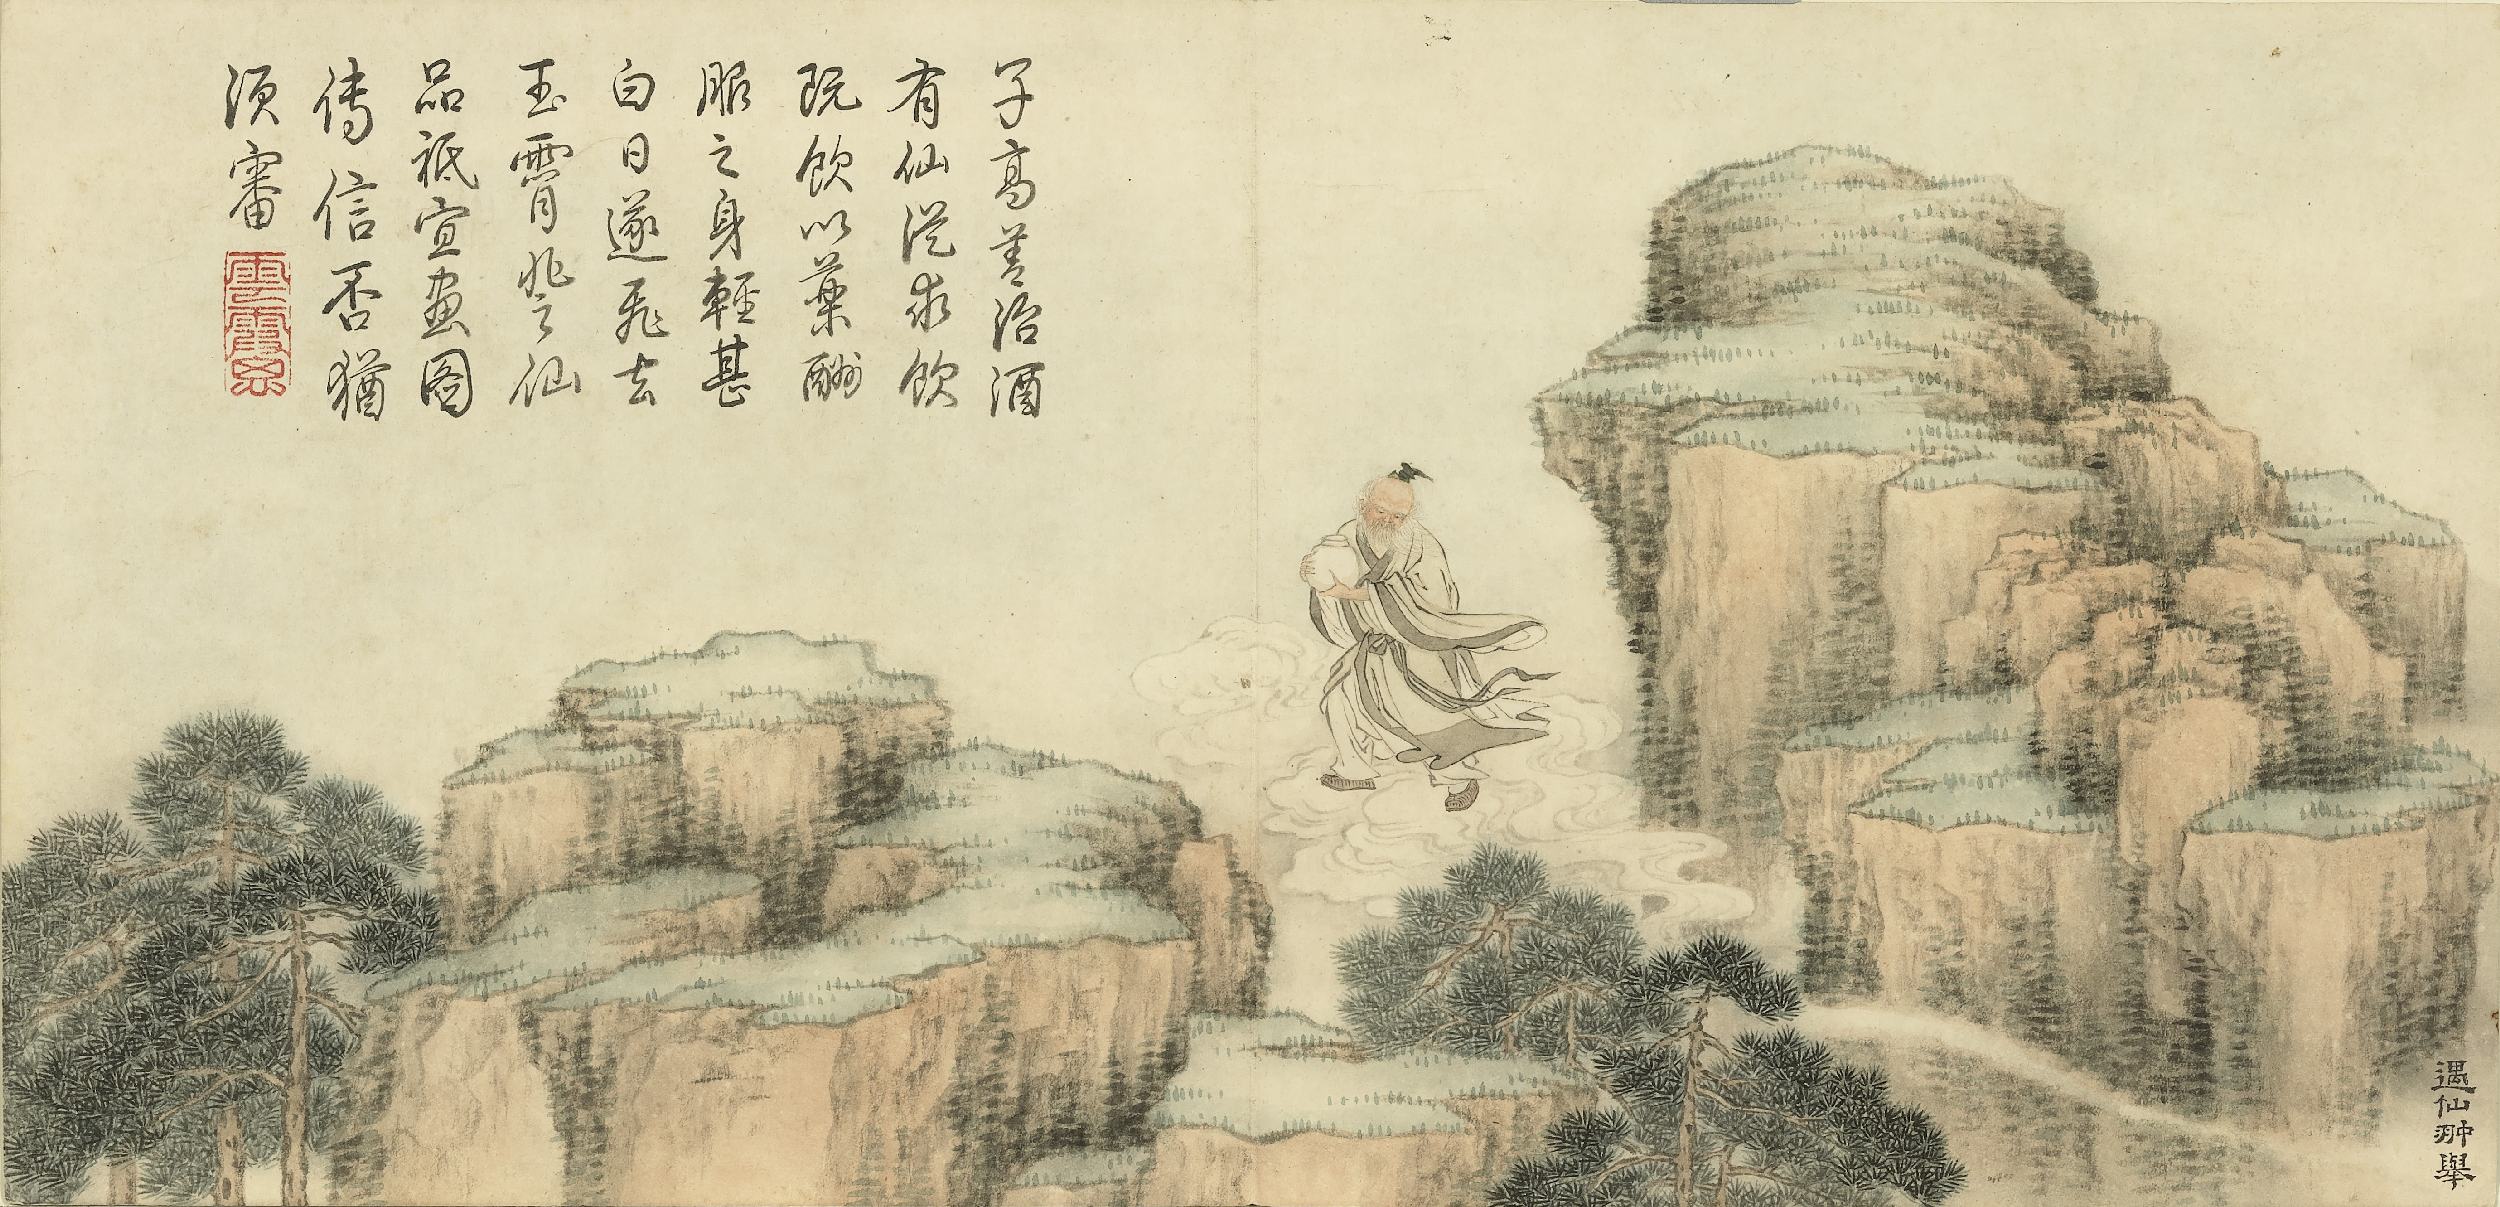 子高善治酒
有仙從求飲
既飲以藥酬
服之身輕甚
白日遂飛去
玉霄非仙
品祗宜畫圖
傳信否猶
須審
雲霞思
遇仙翀舉